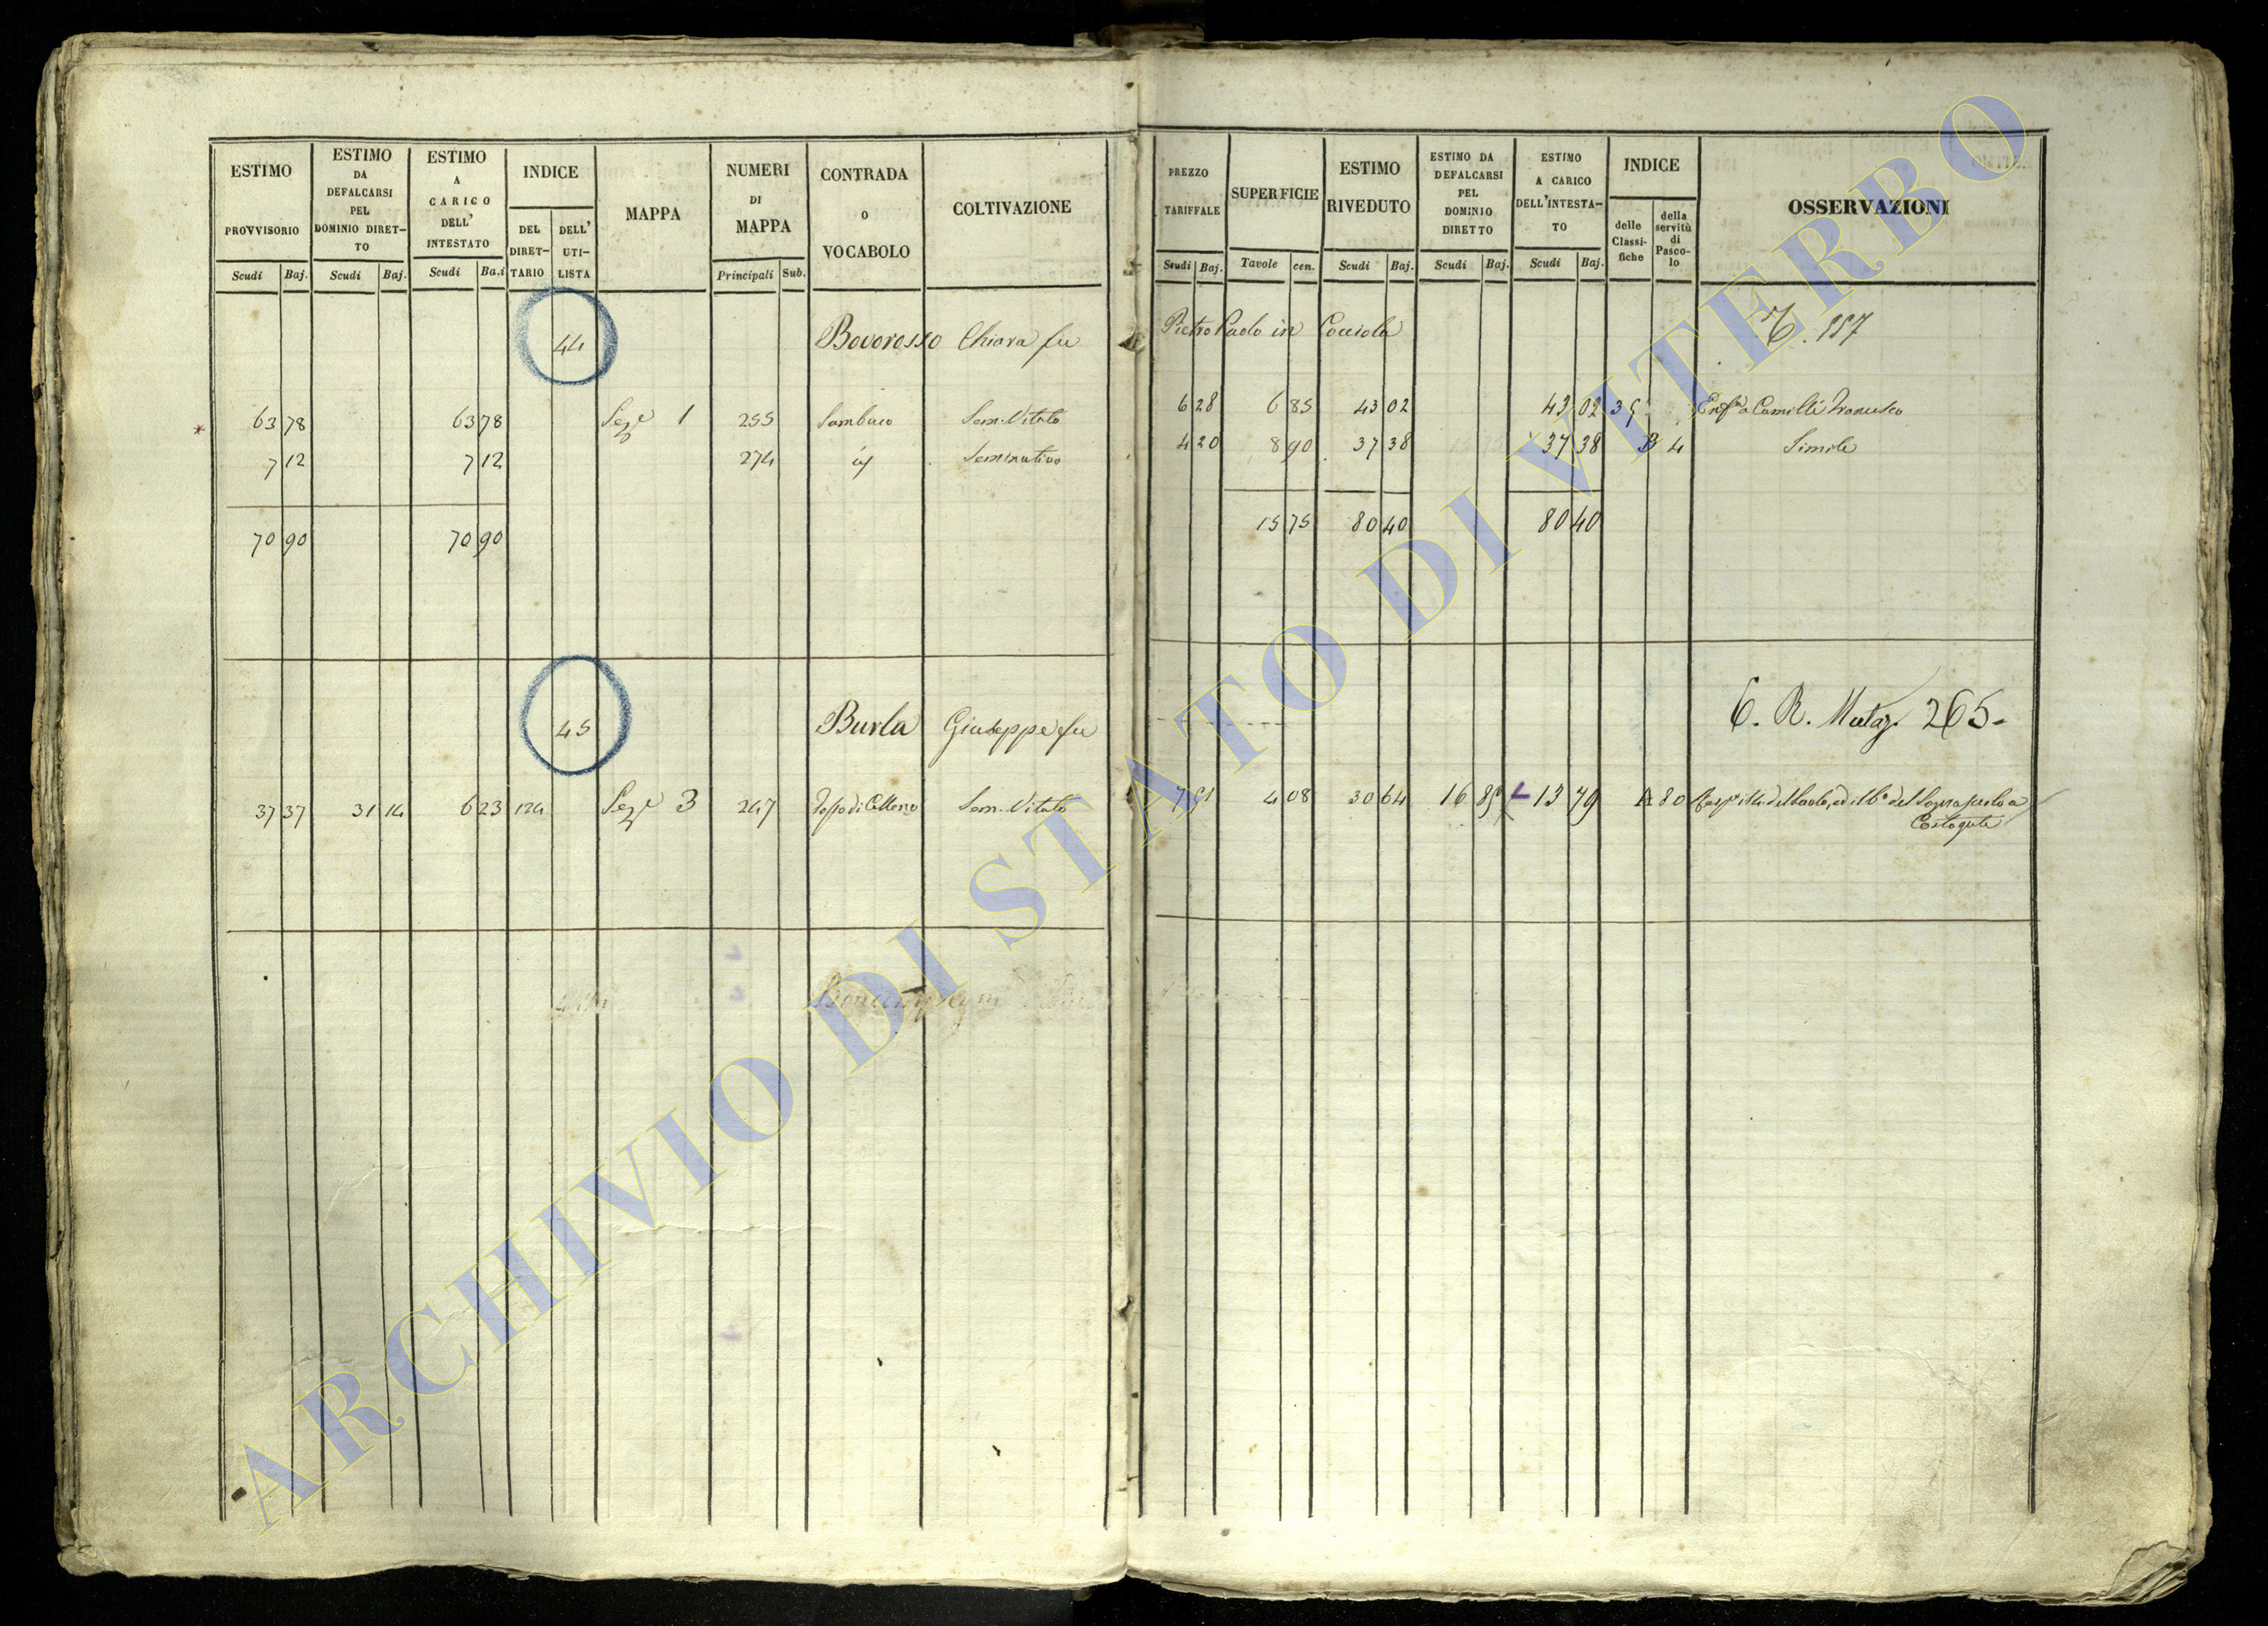 ESTIMO PROVVISORIO Scudi Baj.
ESTIMO DA DEFALCARSI PEL DOMINIO DIRETTO Scudi Baj.
ESTIMO A CARICO DELL' INTESTATO Scudi Ba.i
INDICE DEL DIRETTARIO DELL' UTILISTA
MAPPA
NUMERI DI MAPPA Principali Sub.
CONTRADA O VOCABOLO
COLTIVAZIONE
PREZZO TARIFFALE Scudi Baj.
SUPERFICIE Tavole cen.
ESTIMO RIVEDUTO Scudi Baj.
ESTIMO DA DEFALCARSI PEL DOMINIO DIRETTO Scudi Baj.
ESTIMO A CARICO DELL'INTESTATO Scudi Baj.
INDICE delle Classifiche della servitù di Pascolo
OSSERVAZIONI
44 Bovorosso Chiara fu Pietro Paolo in Cocciola
63 78 63 78 Seze 1 255 Sambuco Sem. Vitato 6 28 6 85 43 02 43 02 Camilli Francesco
7 12 7 12 274 id Seminativo 4 20 8 90 37 38 37 38 B 4 Simile
70 90 70 90 15 75 80 40 80 40
45 Burla Giuseppe fu C. R. Mutaz. 265.
37 37 31 14 6 23 124 Seze 3 247 Sem. Vitato 4 08 30 64 16 85 13 79 A 80
ARCHIVIO DI STATO DI VITERBO